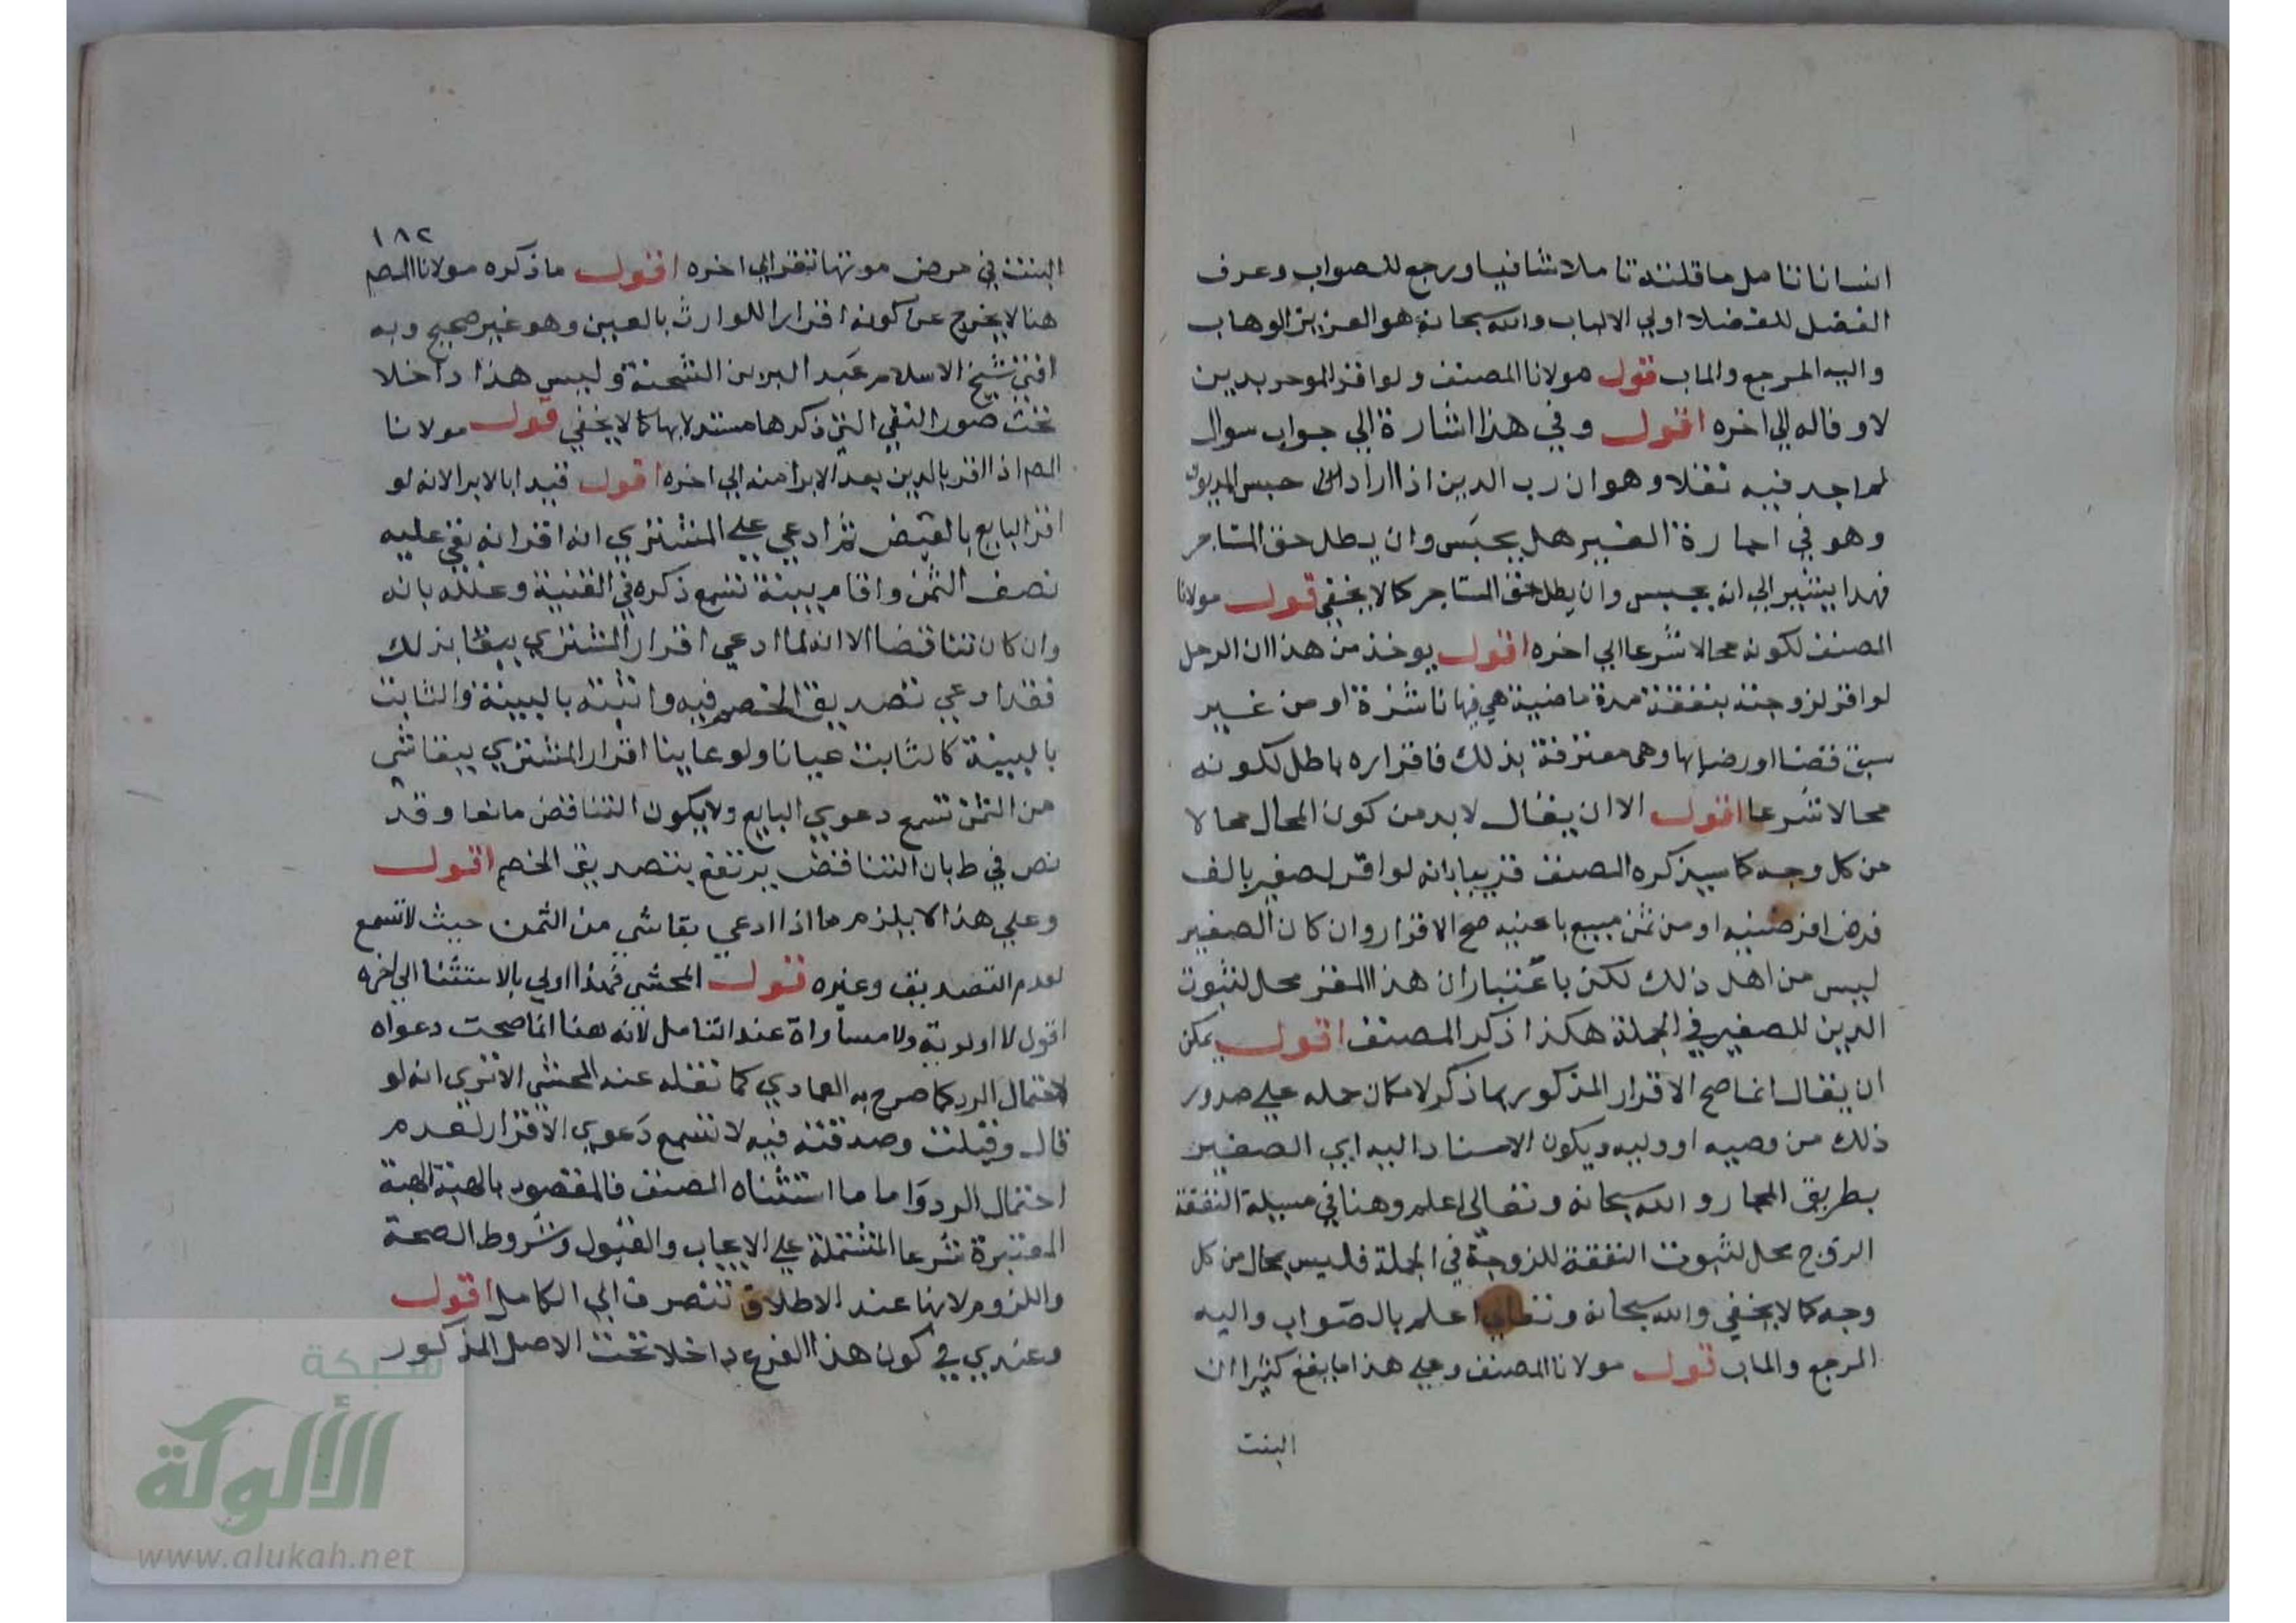 انسانا تامل ما قلته تاملا شافيا ورجع للصواب وعرف
الفضل للفضلا اولي الالباب والله سبحانه هو العزيز الوهاب
واليه المرجع والماب قول مولانا المصنف ولو اقر الموجر بدين
لا وفا له الي اخره اقول وفي هذا اشارة الي جواب سوال
لم اجد فيه نقلا وهو ان رب الدين اذا اراد حبس المديون
وهو في اجارة الغير هل يحبس وان بطل حق المستاجر
فهذا يشير الي انه يحبس وان بطل حق المستاجر كما لا يخفي قول مولانا
المصنف لكونه محالا شرعا الي اخره اقول يوخذ من هذا ان الرجل
لو اقر لزوجته بنفقة مدة ماضية هي فيها ناشزة او من غير
سبق قضا او رضا بها وهي معترفة بذلك فاقراره باطل لكونه
محالا شرعا اقول الا ان يقال لا بد من كون المحال محالا
من كل وجه كما سيذكره المصنف قريبا بانه لو اقر لصغير بالف
قرض اقرضنيه او من ثمن مبيع باعنيه صح الاقرار وان كان الصغير
ليس من اهل ذلك لكن باعتبار ان هذا المقر محل لثبوت
الدين للصغير في الجملة هكذا ذكر المصنف اقول يمكن
ان يقال انما صح الاقرار المذكور بما ذكر لامكان حمله علي صدور
ذلك من وصيه او وليه ويكون الاسناد اليه اي الصغير
بطريق المجاز والله سبحانه وتعالى اعلم وهنا في مسيلة النفقة
الزوج محل لثبوت النفقة للزوجة في الجملة فليس بمحال من كل
وجه كما لا يخفي والله سبحانه وتعالي اعلم بالصواب واليه
المرجع والماب قول مولانا المصنف وعلي هذا ما يقع كثيرا ان
البنت
١٨٢
البنت في مرض موتها تقر الي اخره اقول ما ذكره مولانا المصم
هنا لا يخرج عن كونه اقرارا للوارث بالعين وهو غير صحيح وبه
افتي شيخ الاسلام عبد البر بن الشحنة وليس هذا داخلا
تحت صور النفي التي ذكرها مستدلا بها كما لا يخفي قول مولانا
المص اذا اقر بالدين بعد الابرا منه الي اخره اقول قيد بالابرا لانه لو
اقر البايع بالقبض ثم ادعي علي المشتري انه اقر انه بقي عليه
نصف الثمن واقام بينة تسمع ذكره في القنية وعلله بانه
وان كان تناقضا الا انه لما ادعي اقرار المشتري ببقا ذلك
فقد ادعي تصديق الخصم فيه واثبته بالبينة والثابت
بالبينة كالثابت عيانا ولو عاينا اقرار المشتري ببقا شي
من الثمن تسمع دعوي البايع ولا يكون التناقض مانعا وقد
نص في ط بان التناقض يرتفع بتصديق الخصم اقول
وعلي هذا لا يلزم ما اذا ادعي بقا شي من الثمن حيث لا تسمع
لعدم التصديق وغيره قول المحشي فهذا اولي بالاستثنا الي اخره
اقول لا اولوية ولا مساواة عند التامل لانه هنا انما صحت دعواه
لاحتمال الرد كما صرح به العمادي كما نقله عنه المحشي الا تري انه لو
قال وقبلت وصدقته فيه لا تسمع دعوي الاقرار لعدم
احتمال الرد واما ما استثناه المصنف فالمقصود بالهبة الهبة
المعتبرة شرعا المشتملة علي الايجاب والقبول وشروط الصحة
واللزوم لانها عند الاطلاق تنصرف الي الكامل اقول
وعندي في كون هذا الفرع داخلا تحت الاصل المذكور
شبكة
الألوكة
www.alukah.net